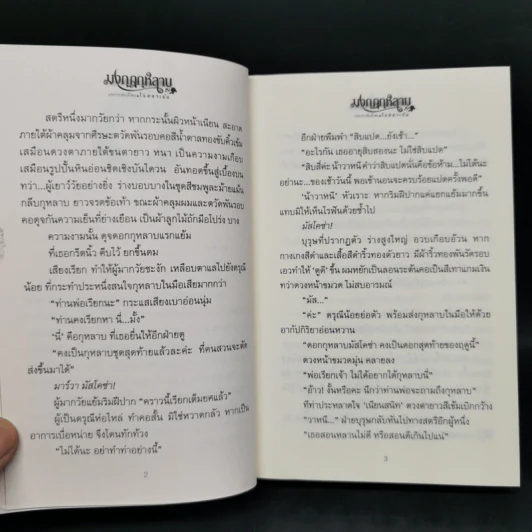 มงกุฎกุหลาบ
สตรีหนึ่งมากวัยกว่า หากกระนั้นผิวหน้าเนียน สะอาด
ภายใต้ผ้าคลุมจากศีรษะตวัดพันรอบคอสีน้ำตาลทองขับคิ้วเข้ม
เสมือนดวงตาภายใต้ขนตายาว หนา เป็นความงามเกือบ
เสมือนรูปปั้นหินอ่อนชิดเชิงบันไดวน อันทอดขึ้นสู่เบื้องบน
ทว่า...ผู้เยาว์วัยอย่างยิ่ง ร่างบอบบางในชุดสีชมพูละม้ายแม้น
กลีบกุหลาบ ยาวจรดข้อเท้า ขณะผ้าคลุมผมและตวัดพันรอบ
คอดุจกันความเย็นที่ย่างเยือน เป็นผ้าลูกไม้ถักมือโปร่ง บาง
ความงามนั้น ดุจดอกกุหลาบแรกแย้ม
ที่เธอกรีดนิ้ว คีบไว้ ยกขึ้นดม
เสียงเรียก ทำให้ผู้มากวัยชะงัก เหลือบตาแลไปยังดรุณี
น้อย ที่กระทำประหนึ่งสนใจกุหลาบในมือเสียมากกว่า
“ท่านพ่อเรียกนะ” กระแสเสียงเบาอ่อนนุ่ม
“ท่านคงเรียกหา นี่...มั้ง”
‘นี่’ คือกุหลาบ ที่เธอยื่นให้อีกฝ่ายดู
“คงเป็นกุหลาบชุดสุดท้ายแล้วละค่ะ ที่คนสวนจะตัด
ส่งขึ้นมาได้”
มาร์วา มัสโคซ่า!
ผู้มากวัยแย้มริมฝีปาก “คราวนี้เรียกเต็มยศแล้ว”
ผู้เป็นดรุณีห่อไหล่ ทำคอสั้น มิใช่หวาดกลัว หากเป็น
อาการเบื่อหน่าย จึงโดนทักท้วง
“ไม่ได้นะ อย่าทำท่าอย่างนี้”
2
มงกุฎกุหลาบ
อีกฝ่ายพึมพำ “สิบแปด...ยังเช้า...”
“อะไรกัน เธออายุสิบสองนะ ไม่ใช่สิบแปด”
“สิบสี่ค่ะ น้าวาหนี คำว่าสิบแปดนั่นคือข้อห้าม...ไม่ได้นะ
อย่านะ...ของเช้าวันนี้ พอเช้านอนจะครบร้อยแปดครั้งพอดี”
‘น้าวาหนี’ หัวเราะ หากริมฝีปากแค่แยกแย้มมากขึ้น
แทบมิให้เห็นไรฟันด้วยซ้ำไป
มัสโคซ่า!
บุรุษที่ปรากฏตัว ร่างสูงใหญ่ อวบเกือบอ้วน หาก
กางเกงสีดำและเสื้อสีดำริ้วทองตัวยาว มีผ้าริ้วทองพันรัดรอบ
เอวทำให้ ‘ดูดี’ ขึ้น ผมหยักเป็นลอนระต้นคอเป็นสีเทาแกมเงิน
ทว่าดวงหน้าขมวด ไม่สบอารมณ์
“มัส...”
“ค่ะ” ดรุณีน้อยย่อตัว พร้อมส่งกุหลาบในมือให้ด้วย
อากัปกิริยาอ่อนหวาน
“ดอกกุหลาบมัสโคซ่า คงเป็นดอกสุดท้ายของฤดูนี้”
ดวงหน้าขมวดมุ่น คลายลง
“พ่อเรียกเจ้า ไม่ได้อยากได้กุหลาบนี่”
“อ้าว! งั้นหรือคะ นึกว่าท่านพ่อจะถามถึงกุหลาบ”
ทีท่าประหลาดใจ ‘เนียนสนิท’ ดวงตายาวสีเข้มเบิกกว้าง
“วาหนี...” ฝ่ายบุรุษกลับหันไปทางสตรีอีกผู้หนึ่ง
“เธอสอนหลานไม่ดี หรือสอนดีเกินไปแน่”
3